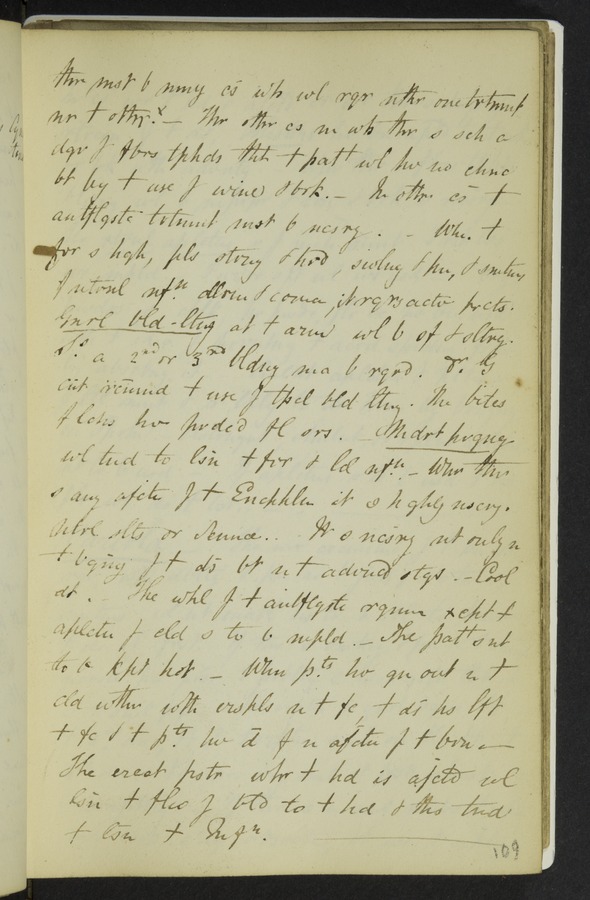 thr mst b mny cs wh wl rqr nthr one trtmnt
nr t othr.x – Thr othr cs in wh thr s sch a
dgr f fbrs tphds tht t patt wl hv no chnc
bt by t use f wine & brk. – In othr cs t
antflgstc trtmnt mst b ncsry. – Whn t
fvr s hgh, pls strng & hrd, swlng & pn, & smtms
f intrnl nfn. dlrm & coma, it rqrs actv prcts.
Gnrl bld-lttng at t arm wl b of &
So a 2nd or 3rd bldng ma b rqrd. Dr. G
t use f tpcl bld lttng. The bites
f lchs hv prdcd fl srs. – Modrt prgng
wl tnd to lsn t fvr & lcl nfn. – Whn thr
s any afctn f t Encphln it s hghly ncsry.
Ntrl slts or Senna.. It s ncsry nt only n
t bgng f t ds bt n t advncd stgs. – Cool
dt. – The whl f t antflgstc rgmn xcpt t
aplctn f cld s to b mpld. – The patt s nt
to b kpt hot. – Whn pts hv gn out n t
cld wthr wth erspls n t fc, t ds hs lft
t fc & t pts hv d f n afctn f t brn –
The erect pstr whr t hd is afctd wl
lsn t flo f bld to t hd & ths tnd
t lsn t Infn.
109